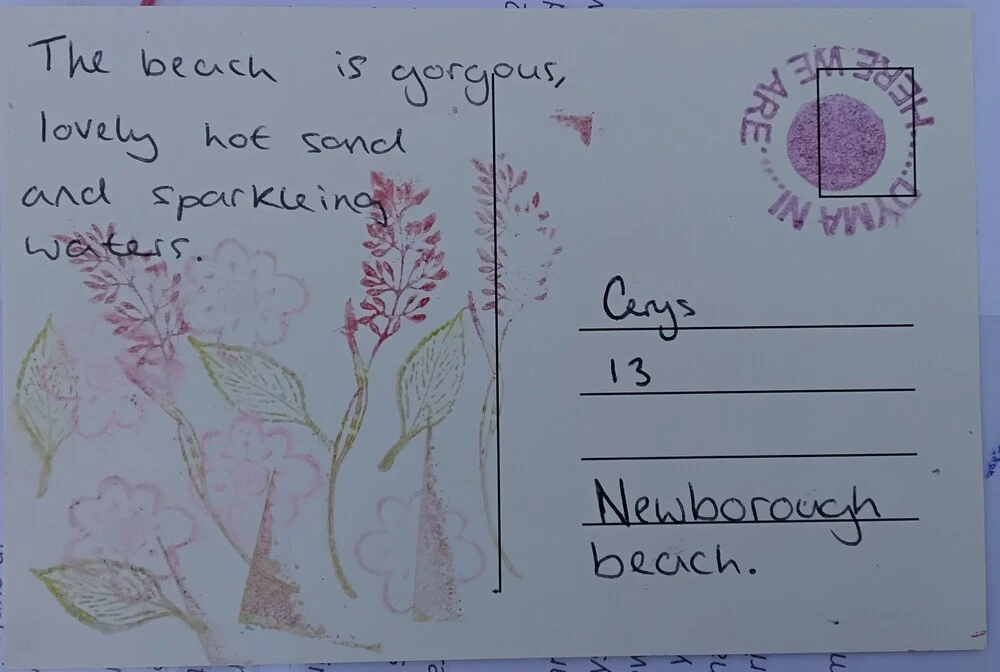 The beach is gorgous,
lovely hot sand
and sparkleing
waters.
HERE WE ARE...
...DYMA NI...
Cerys
13
Newborough
beach.